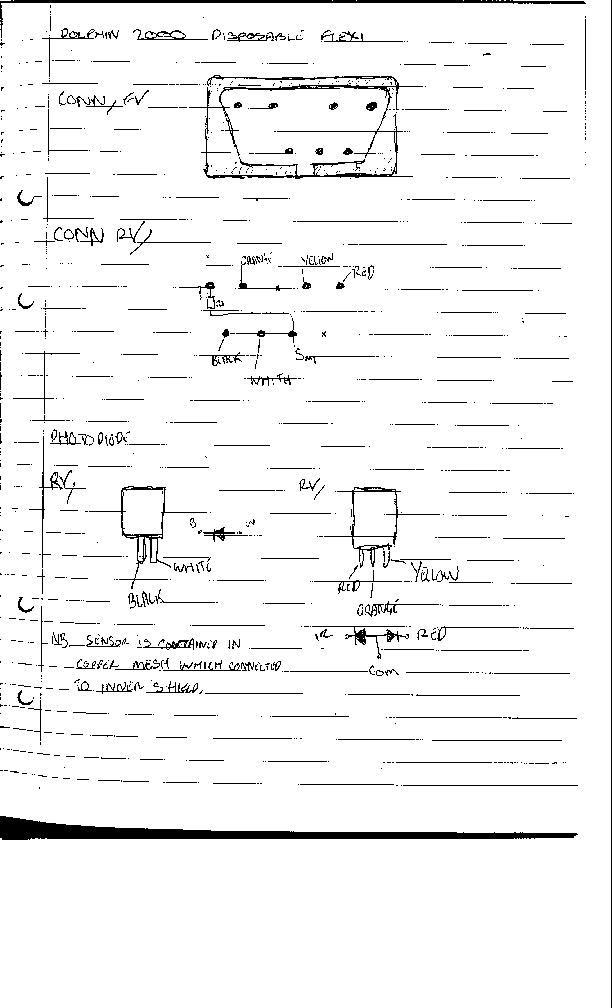 DOLPHIN 2000 DISPOSABLE FLEXI
CONN, FV
CONN RV,
ORANGE YELLOW RED
BLACK
WHITH
PHOTODIODE
RV,
RV,
B W
WHITE
BLACK
RED
YELLOW
ORANGE
IR RED
Com
NB SENSOR IS CONTAINED IN
COPPER MESH WHICH CONNECTED
TO INNER SHIELD.